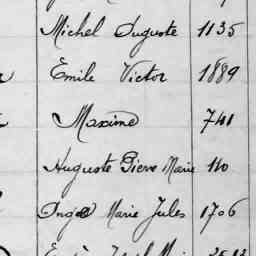 Michel Auguste 1135
Emile Victor 1889
Maxime 741
Auguste Pierre Marie 140
Marie Jules 1706